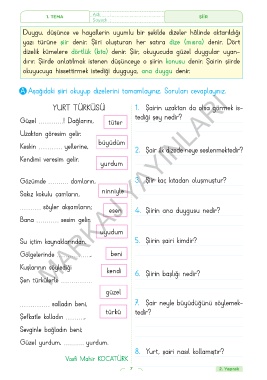 1. TEMA
ŞİİR
Duygu, düşünce ve hayallerin uyumlu bir şekilde dizeler hâlinde aktarıldığı
yazı türüne şiir denir. Şiiri oluşturan her satıra dize (mısra) denir. Dört
dizelik kümelere dörtlük (kıta) denir. Şiir, okuyucuda güzel duygular uyan-
dırır. Şiirde anlatılmak istenen düşünceye o şiirin konusu denir. Şairin şiirde
okuyucuya hissettirmek istediği duyguya, ana duygu denir.
A Aşağıdaki şiiri okuyup dizelerini tamamlayınız. Soruları cevaplayınız.
YURT TÜRKÜSÜ
Güzel ............! Dağlarını,
Uzaktan göresim gelir.
Keskin ............ yellerine,
Kendimi veresim gelir.
Gözümde ............ damların,
Sakız kokulu çamların,
............ söyler akşamların;
Bana ............ sesim gelir.
Su içtim kaynaklarından,
Gölgelerinde ............,
Kuşlarının söylediği
Şen türkülerle ............
............ salladın beni,
Şefkatle kolladın ............,
Sevginle bağladın beni;
Güzel yurdum, ............ yurdum.
Vasfi Mahir KOCATÜRK
tüter
büyüdüm
yurdum
ninniyle
esen
uyudum
beni
kendi
güzel
türkü
1. Şairin uzaktan da olsa görmek is-
tediği şey nedir?
2. Şair ilk dizede neye seslenmektedir?
3. Şiir kaç kıtadan oluşmuştur?
4. Şiirin ana duygusu nedir?
5. Şiirin şairi kimdir?
6. Şiirin başlığı nedir?
7. Şair neyle büyüdüğünü söylemek-
tedir?
8. Yurt, şairi nasıl kollamıştır?
MARKAN YAYINLARI
7